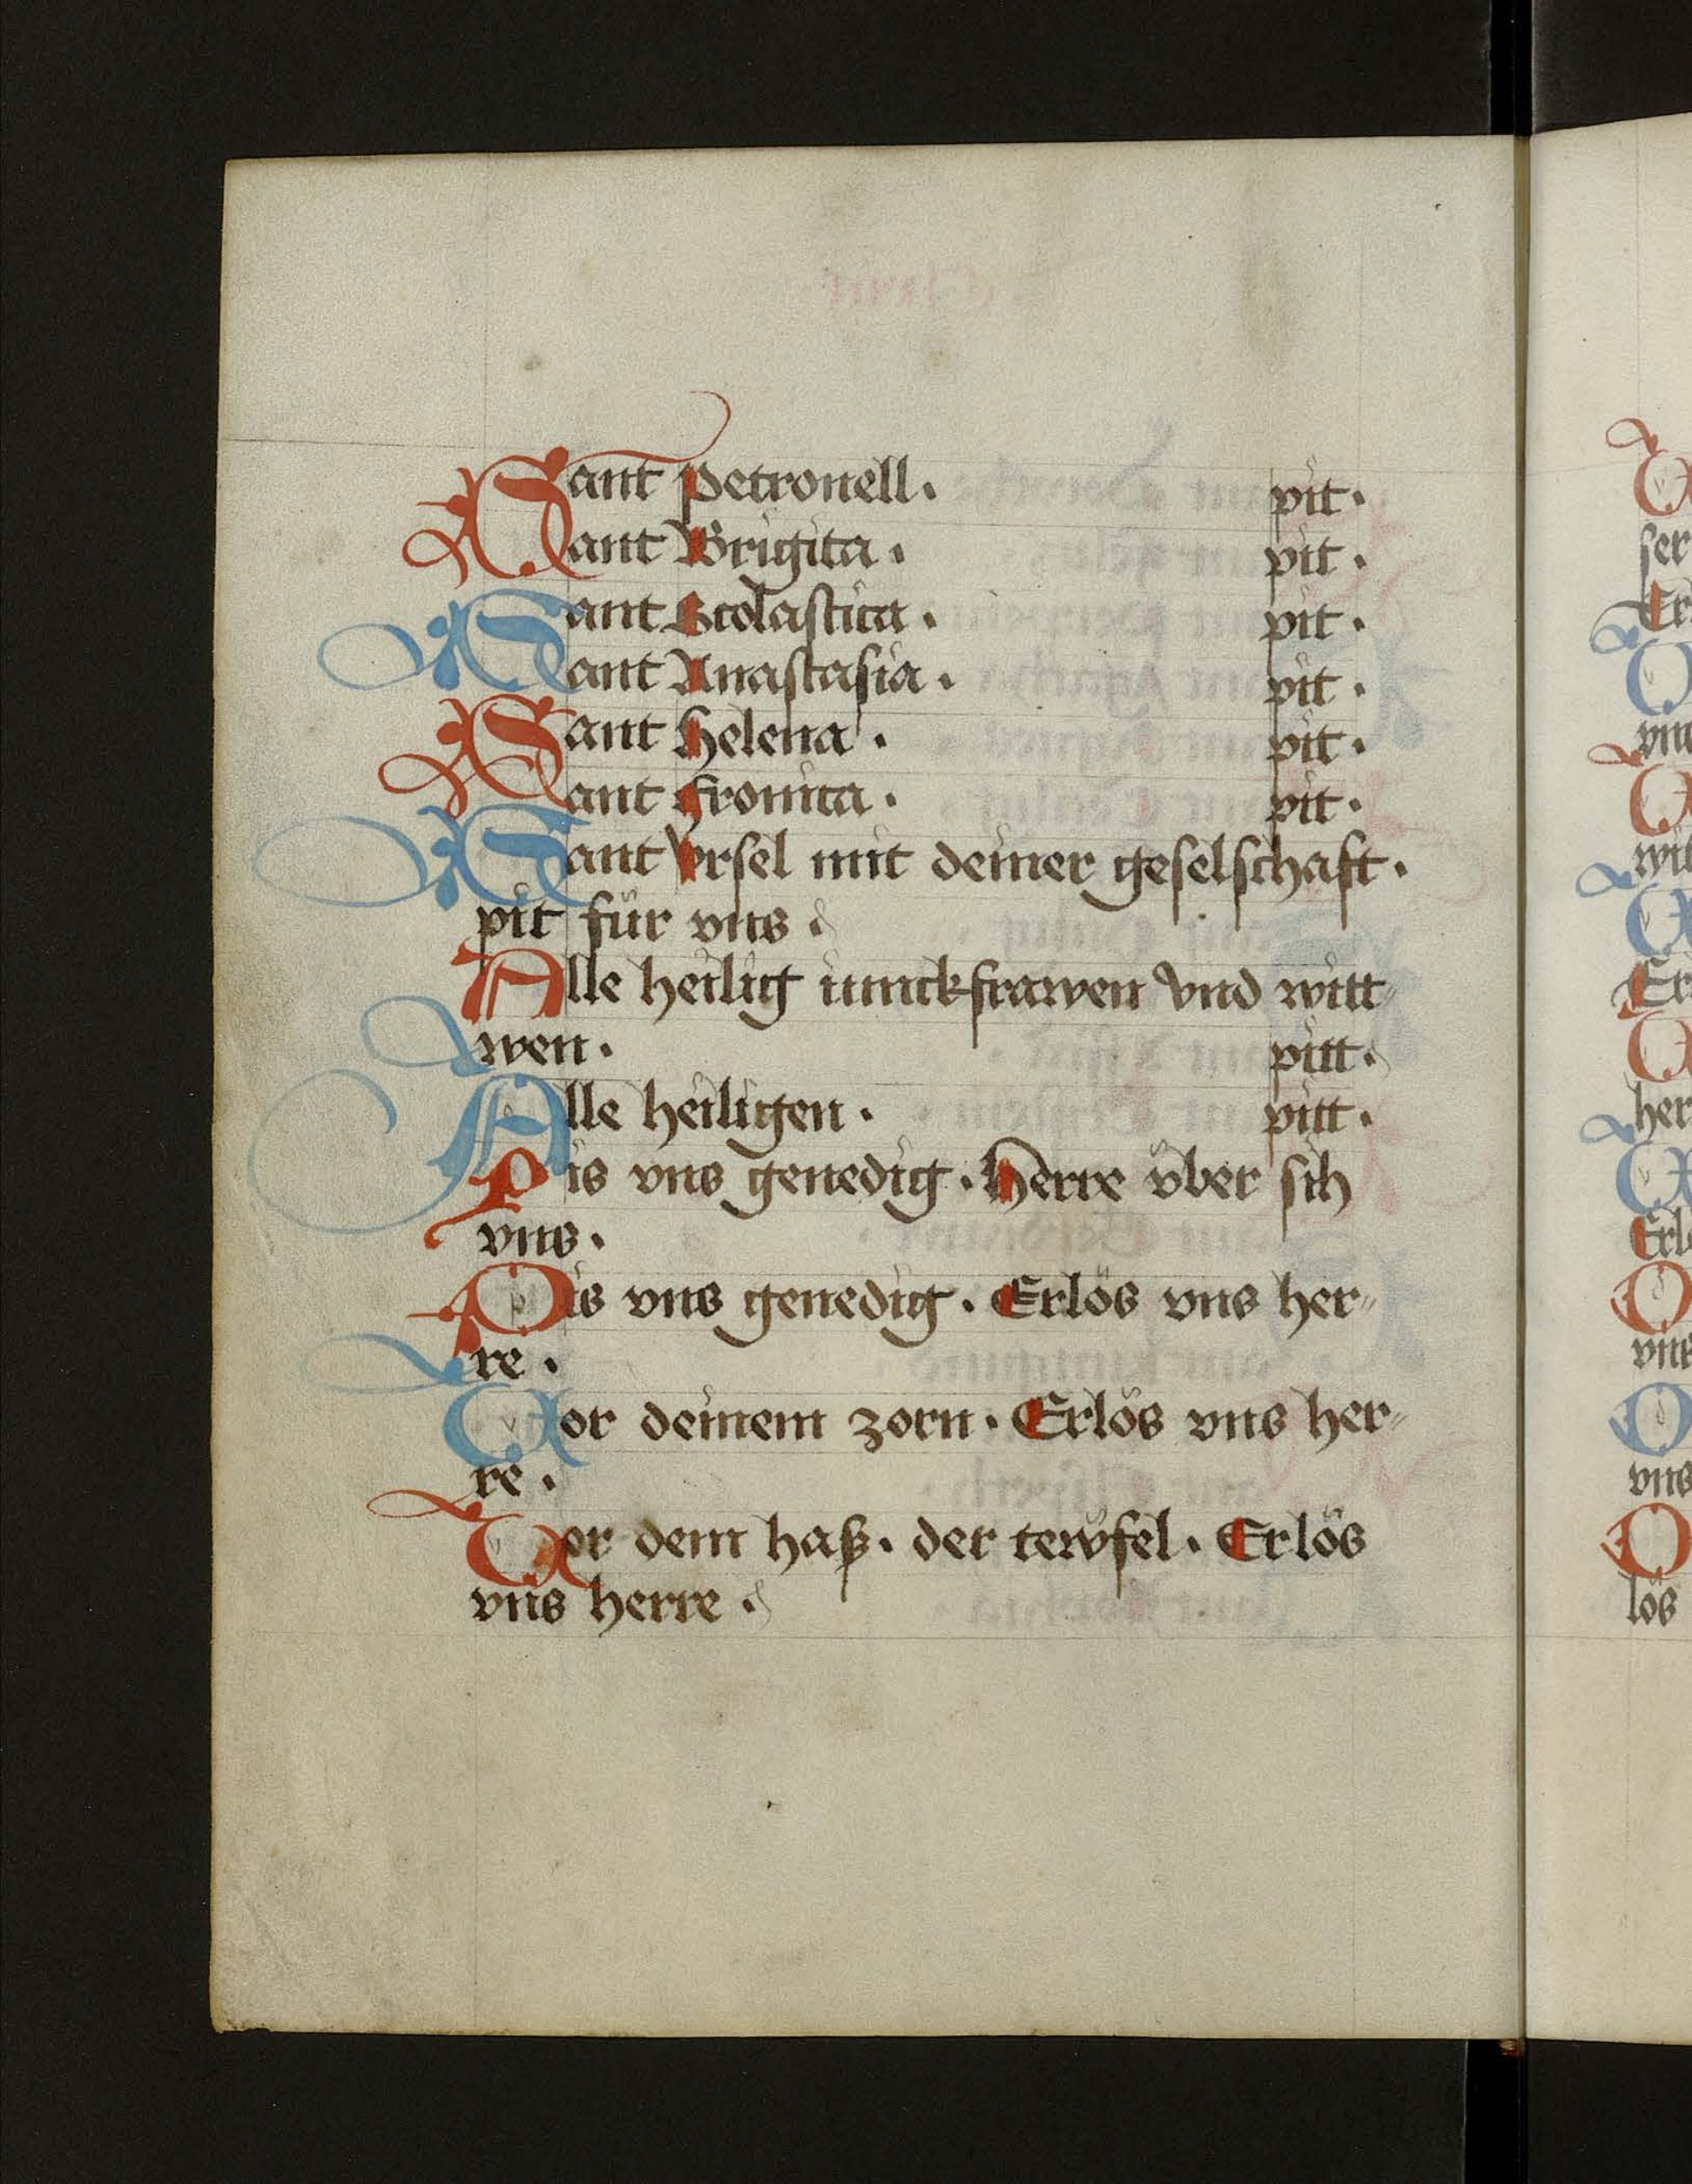 Sant Petronell. pit.
Sant Brigita. pit.
Sant Scolastica. pit.
Sant Anastasia. pit.
Sant Helena. pit.
Sant Fronica. pit.
Sant Vrsel mit deiner geselschaft.
pit für vns.
Alle heilig iunckfrawen vnd witt
wen. pitt.
Alle heiligen. pitt.
Pis vns genedig. Herre v̈ber sich
vns.
Pis vns genedig. Erlös vns her-
re.
Vor deinem zorn. Erlös vns her-
re.
Vor dem haß. der tewfel. Erlös
vns herre.
ser
vns
Erl
vns
vns
lös